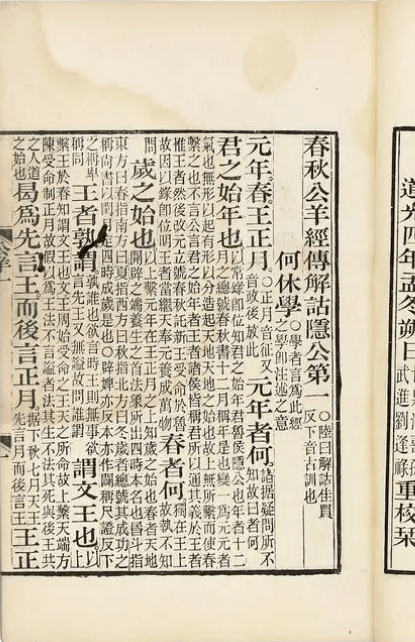 道光四年孟冬朔日武進劉逢祿重校栞
春秋公羊經傳解詁隱公第一○陸曰解詁佳買反下音古訓也
何休學○學者言爲此經之學卽注述之意
元年春王正月○正月音征又音政後放此元年者何諸據疑問所不知故曰者何
君之始年也以常錄卽位知君之始年君魯侯隱公也年者十二月之總號春秋書十二月稱年是也變一爲元元者
氣也無形以起有形以分造起天地天地之始也故上無所繫而使春繫之也不言公言君之始年者王者諸侯皆稱君所以通其義於王者
惟王者然後改元立號春秋託新王受命於魯故因以錄卽位明王者當繼天奉元養成萬物春者何獨在王上故執不知
問歲之始也以上繫元年在王正月之上知歲之始也春者天地開辟之端養生之首法象所出四時本名也昏斗指
東方曰春指南方曰夏指西方曰秋指北方曰冬歲者總號其成功之稱尙書以閏月定四時成歲是也○辟婢亦反本亦作闢稱尺證反下
之稱卑稱同王者孰謂孰誰也欲言時王則無事欲言先王又無謚故問誰謂謂文王也以上
繫王於春知謂文王也文王周始受命之王天之所命故上繫天端方陳受命制正月故假以爲王法不言謚者法其生不法其死與後王共
之人道之始也曷爲先言王而後言正月據下秋七月天王先言月而後言王王正